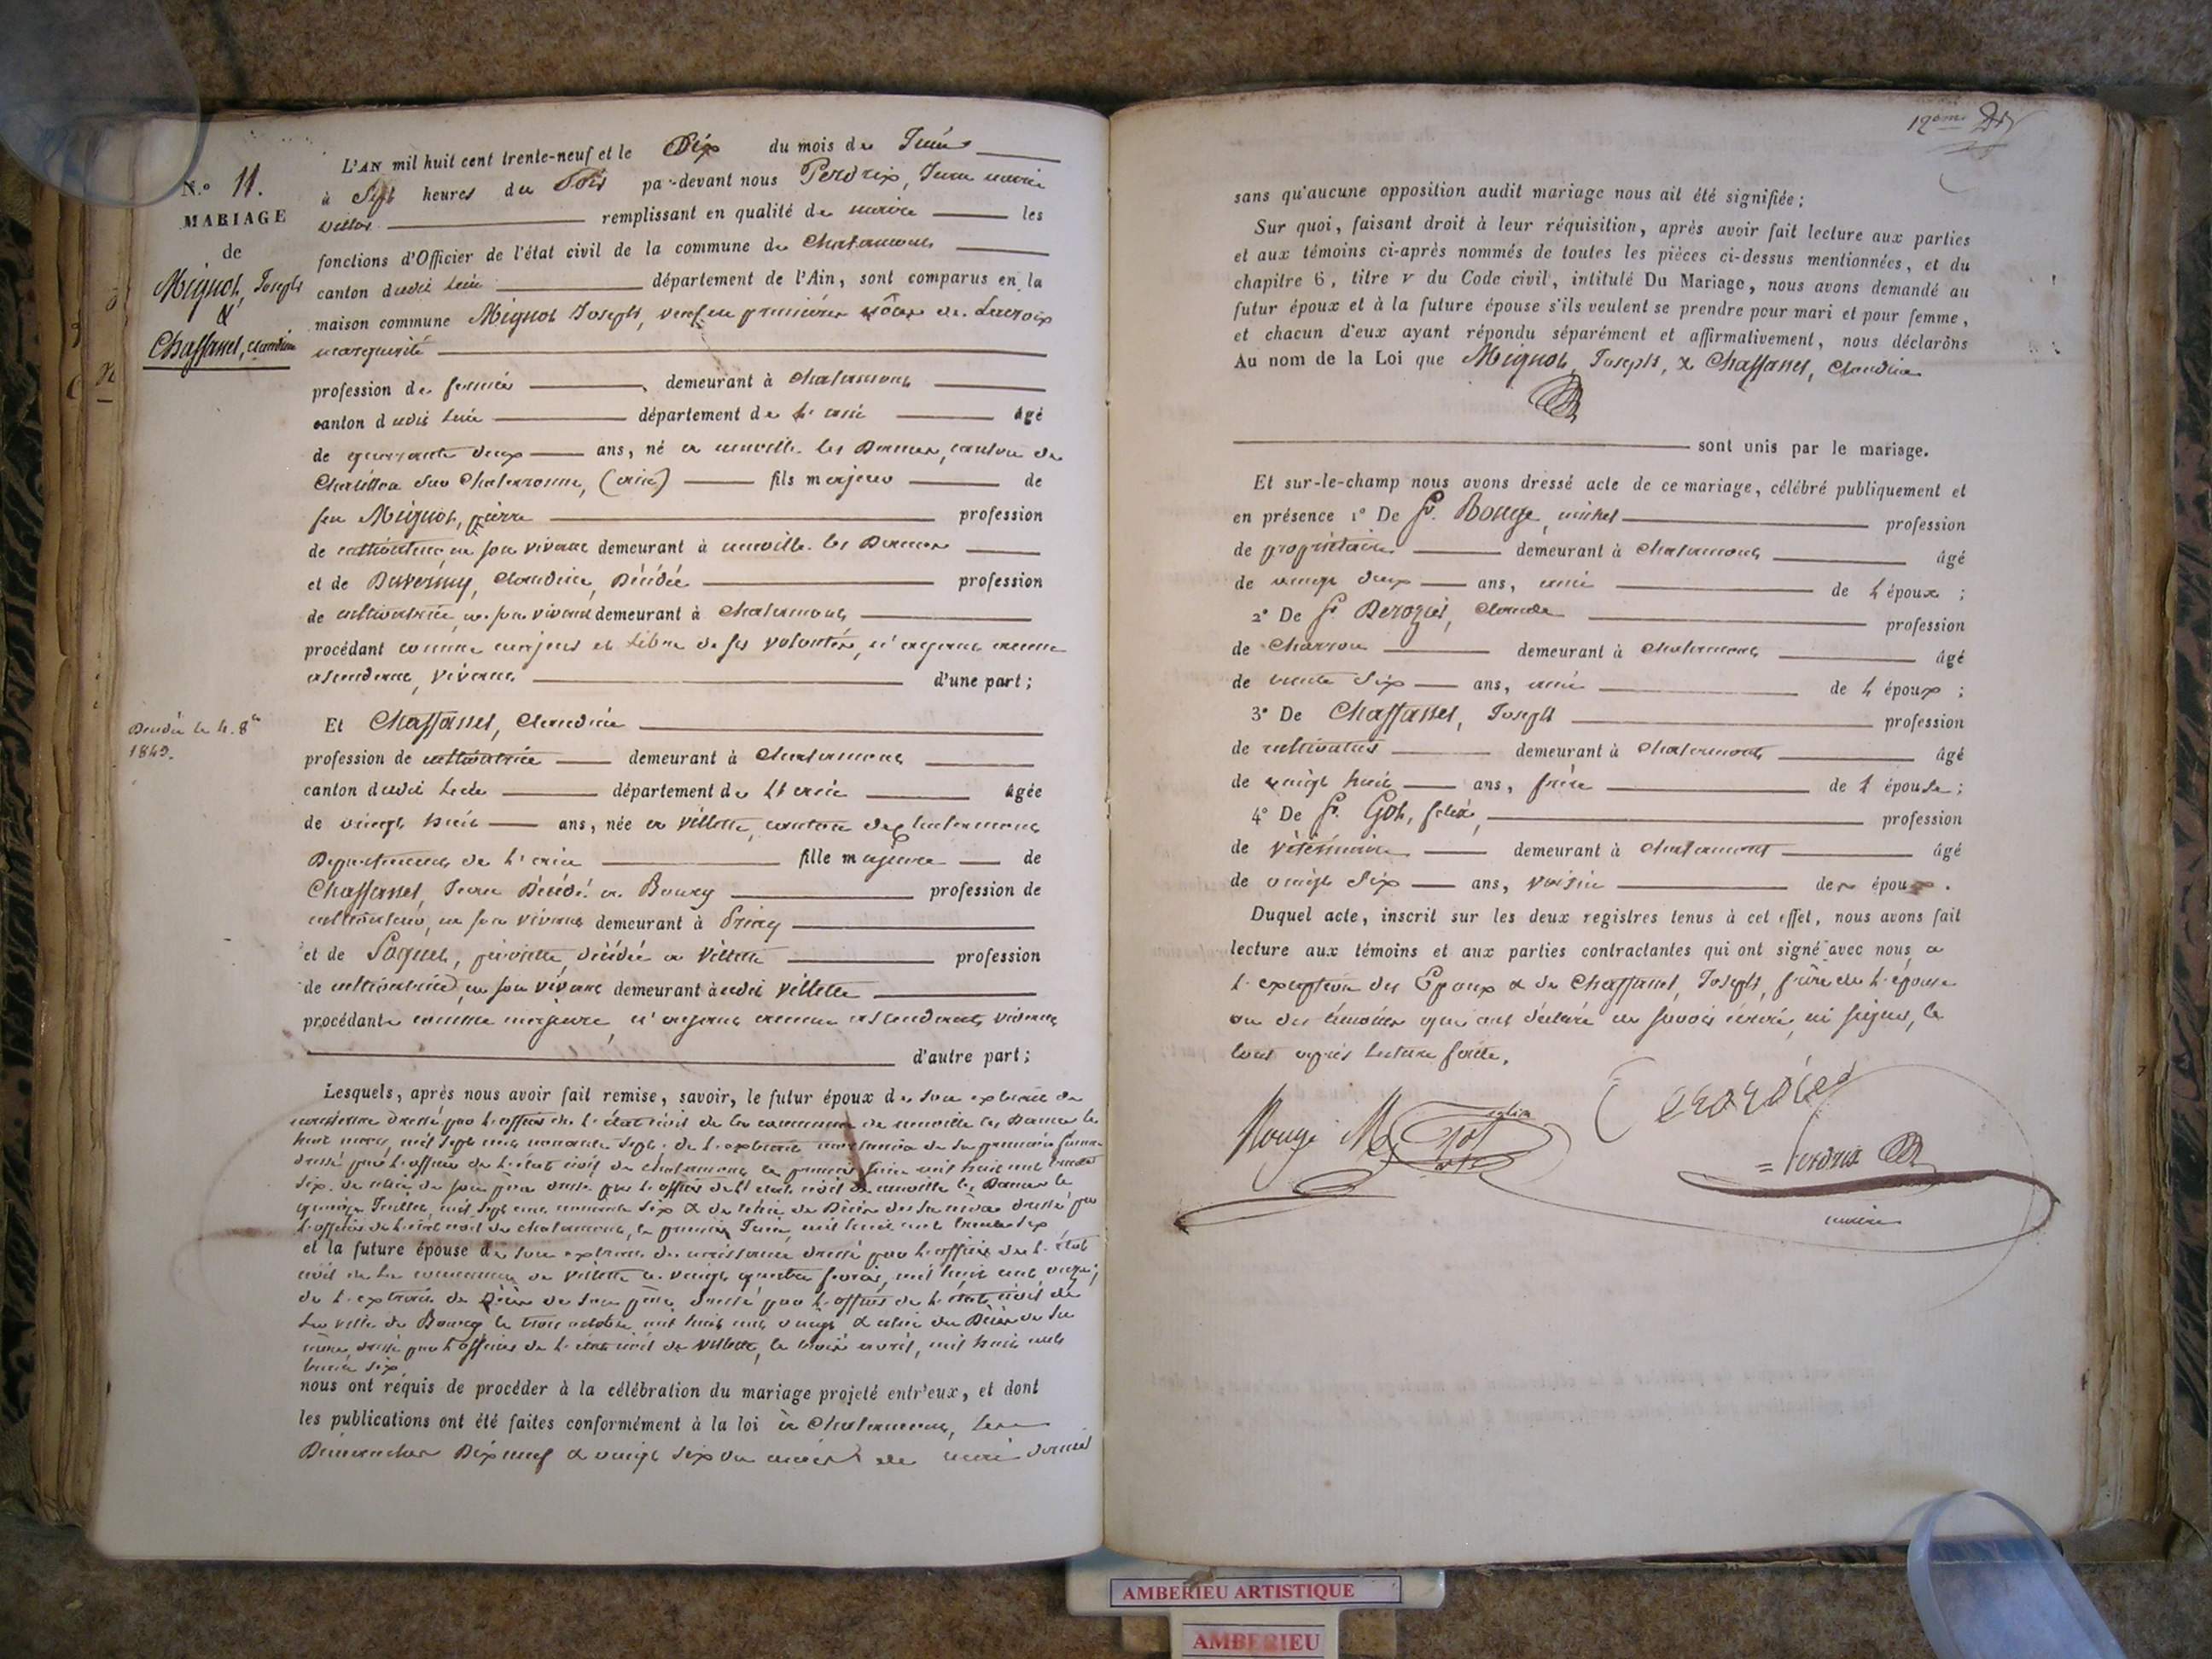 N.o 11.
MARIAGE
de
Mignot, Joseph
&
Chaffanel, Claudine
L'AN mil huit cent trente-neuf et le Dix du mois de Juin
à Sept heures du Soir par-devant nous Perdrix, Jean marie
remplissant en qualité de maire les
fonctions d'Officier de l'état civil de la commune de Chalamont
canton dudit lieu département de l'Ain, sont comparus en la
maison commune Mignot Joseph, veuf en premières nôces de Lacroix
marguerite
profession de fermier, demeurant à Chalamont
canton dudit lieu département de l'ain âgé
de quarante deux ans, né à neuville les Dames, canton de
Chatillon sur Chalaronne, (ain) fils majeur de
feu Mignot, pierre profession
de cultivateur en son vivant demeurant à neuville les Dames
et de Duverney, Claudine, Décédée profession
de cultivatrice, en son vivant demeurant à Chalamont,
procédant comme majeur et libre de ses volontés, n'ayant aucun
ascendant, vivant d'une part;
Décédée le 4. 8bre
1849.
Et Chaffanel, Claudine
profession de cultivatrice demeurant à Chalamont
canton dudit lieu département de l'ain âgée
de vingt huit ans, née à Villette, canton de Chalamont
Département de l'ain fille majeure de
Chaffanel, Jean Décédé à Bourg profession de
cultivateur, en son vivant demeurant à Priay
et de Paquet, pierrette, décédée à Villette profession
de cultivatrice, en son vivant demeurant à audit Villette
procédante comme majeure, n'ayant aucun ascendants, vivants
d'autre part;
Lesquels, après nous avoir fait remise, savoir, le futur époux de son extrait de
naissance dressé par l'officier de l'état civil de la commune de neuville les Dames le
huit mars, mil sept cent nonante sept. de l'extrait mortuaire de sa première femme
dressé par l'officier de l'état civil de Chalamont, le premier Juin mil huit cent trente
six. de celui de son père dressé par l'officier de l'état civil de neuville les Dames le
quinze Juillet, mil sept cent nonante six & de celui de Décès de sa mère dressé par
l'officier de l'état civil de Chalamont, le premier Juin, mil huit cent trente six
et la future épouse de son extrait de naissance dressé par l'officier de l'état
civil de la commune de Villette le vingt quatre février, mil huit cent onze;
de l'extrait de Décès de son père, dressé par l'officier de l'état civil de
la ville de Bourg le trois octobre mil huit cent vingt & celui de Décès de sa
mère, dressé par l'officier de l'état civil de Villette, le trois avril, mil huit cent
trente six
nous ont requis de procéder à la célébration du mariage projeté entr'eux, et dont
les publications ont été faites conformément à la loi à Chalamont, les
Dimanches Dix neuf & vingt six du mois de mai dernier
12ème
sans qu'aucune opposition audit mariage nous ait été signifiée;
Sur quoi, faisant droit à leur réquisition, après avoir fait lecture aux parties
et aux témoins ci-après nommés de toutes les pièces ci-dessus mentionnées, et du
chapitre 6, titre V du Code civil, intitulé Du Mariage, nous avons demandé au
futur époux et à la future épouse s'ils veulent se prendre pour mari et pour femme,
et chacun d'eux ayant répondu séparément et affirmativement, nous déclarons
Au nom de la Loi que Mignot, Joseph, & Chaffanel, Claudine
sont unis par le mariage.
Et sur-le-champ nous avons dressé acte de ce mariage, célébré publiquement et
en présence 1o De Sr. Rouge, michel profession
de propriétaire demeurant à Chalamont âgé
de vingt deux ans, ami de l'époux;
2o De Sr. Derozier, Claude profession
de Charron demeurant à Chalamont âgé
de trente six ans, ami de l'époux;
3o De Chaffanel, Joseph profession
de cultivateur demeurant à Chalamont âgé
de vingt huit ans, frère de l'épouse;
4o De Sr. Got, felix, profession
de véterinaire demeurant à Chalamont âgé
de vingt six ans, voisin des époux.
Duquel acte, inscrit sur les deux registres tenus à cet effet, nous avons fait
lecture aux témoins et aux parties contractantes qui ont signé avec nous, à
l'exception des Epoux & de Chaffanel, Joseph, frère de l'épouse
un des témoins qui ont déclaré ne savoir écrire, ni signer, le
tout après lecture faite.
Rouge M
Got
Derozier
Perdrix
maire
AMBERIEU ARTISTIQUE
AMBERIEU